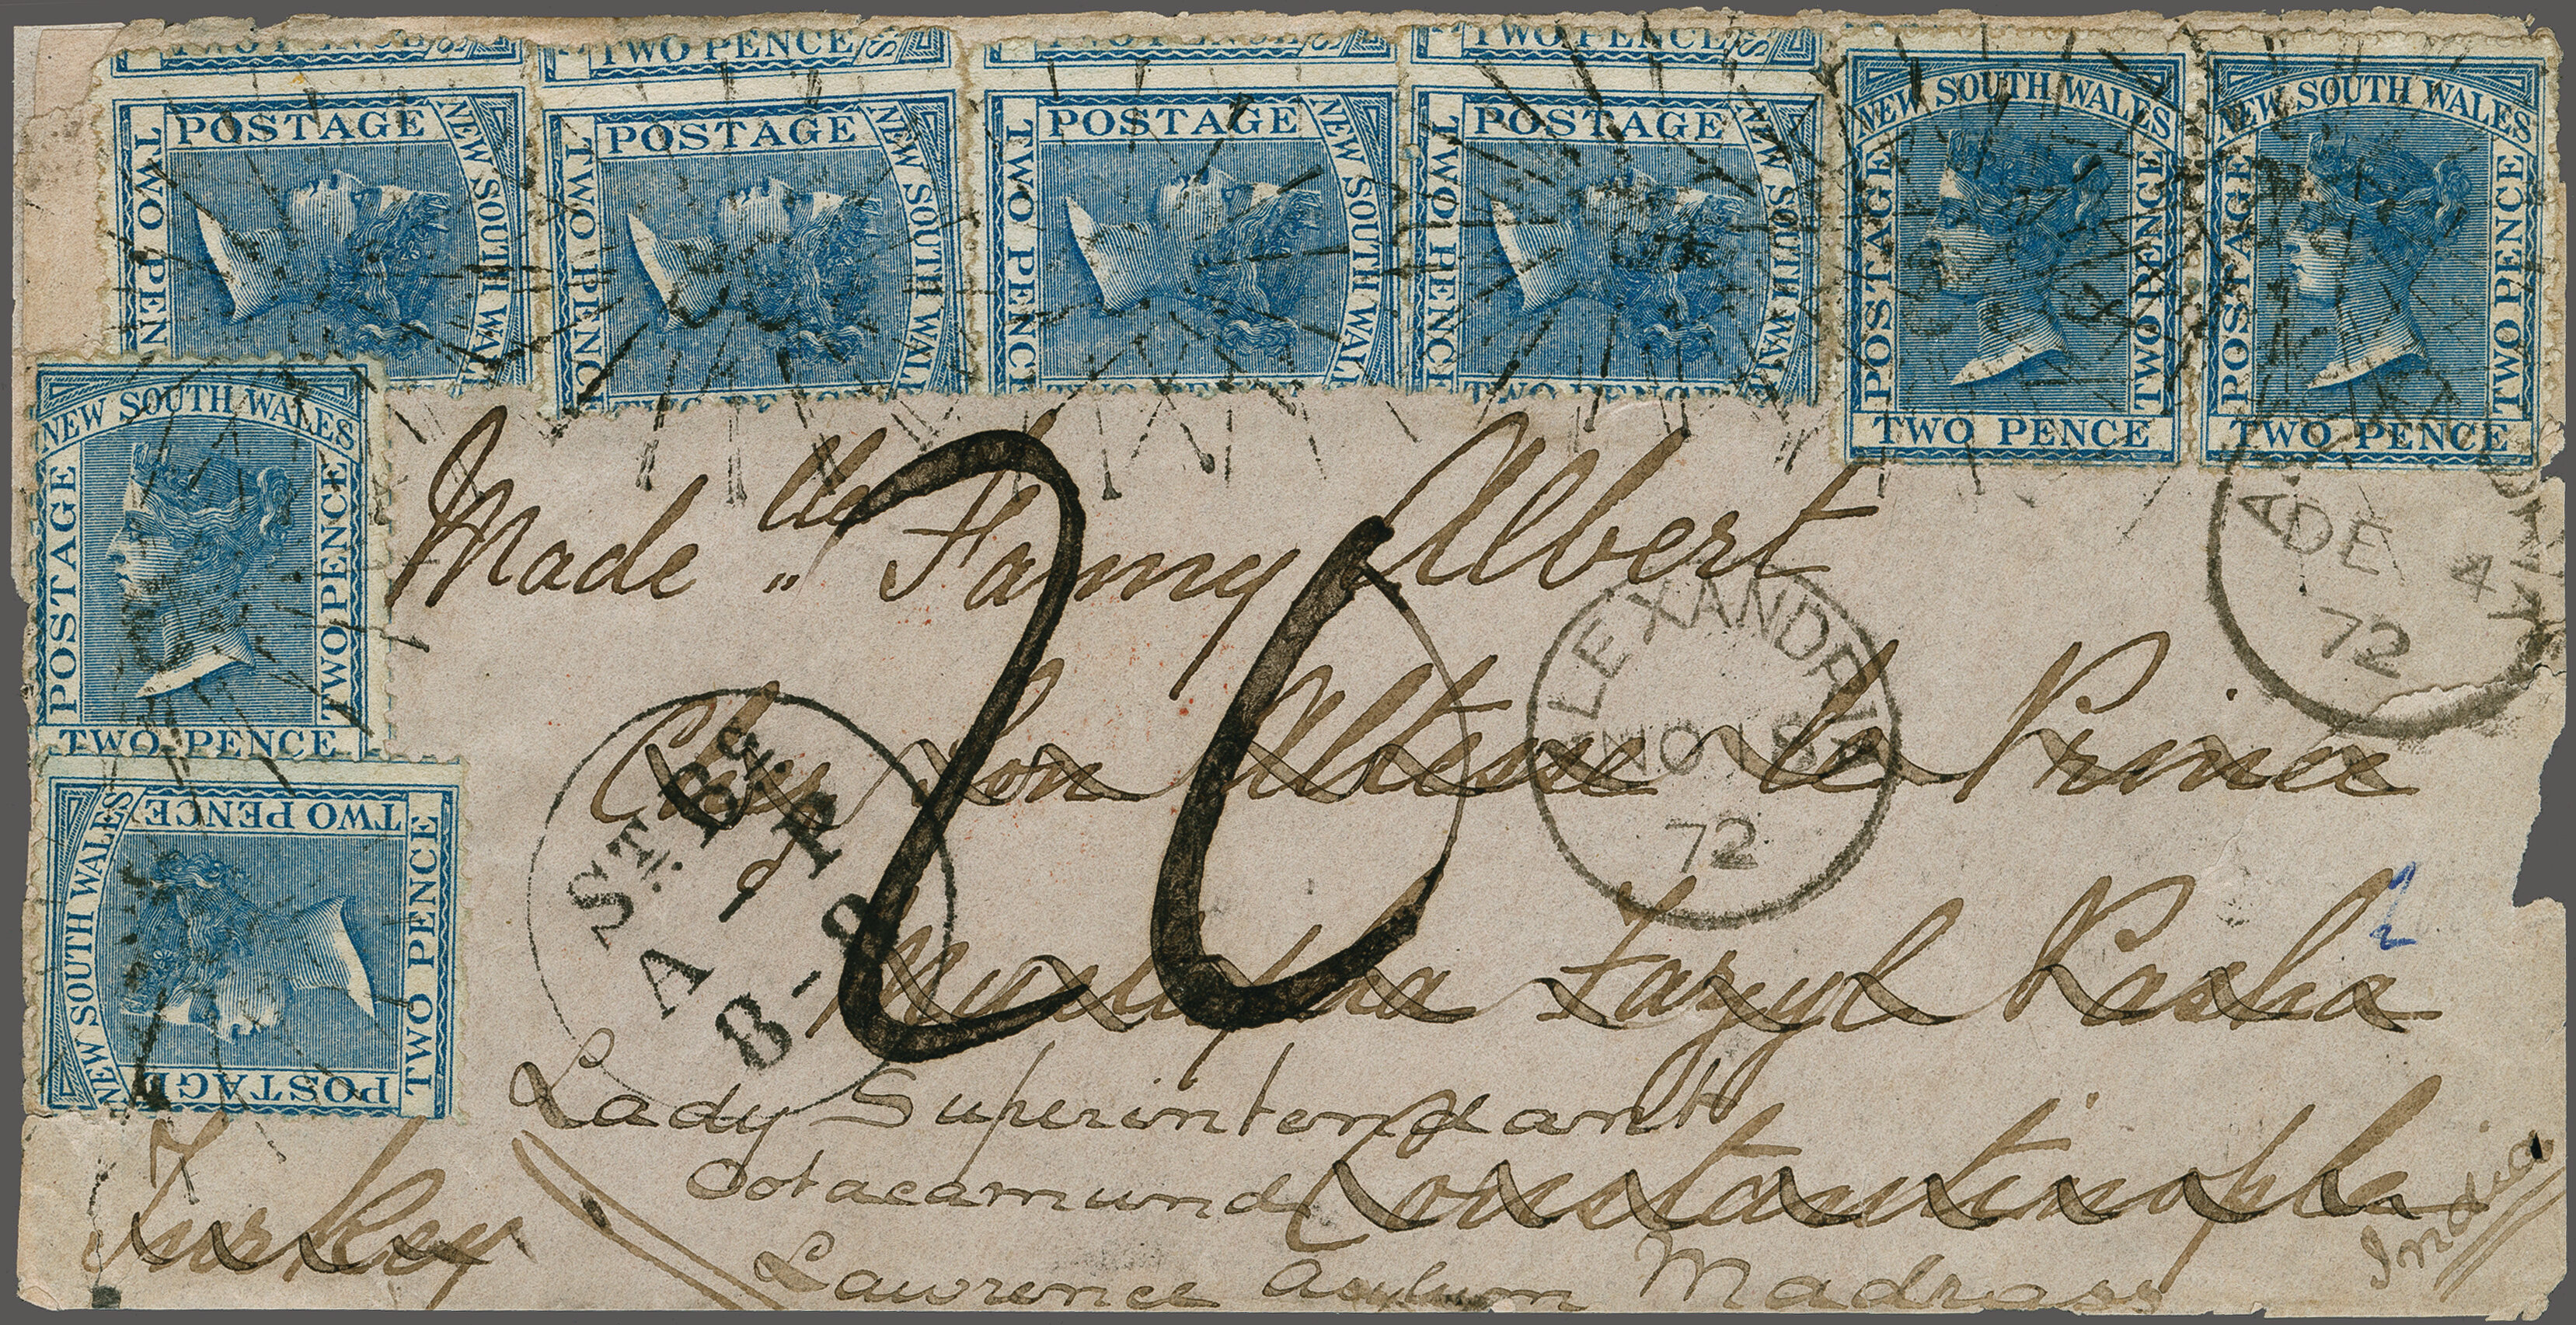 TWO PENCE
TWO PENCE
TWO PENCE
TWO PENCE
POSTAGE
TWO PEN
NEW SOUTH WAL
POSTAGE
TWO PENC
NEW SOUTH WAL
TWO PENCE
POSTAGE
TWO PENC
NEW SOUTH WAL
TWO PENCE
POSTAGE
TWO PENCE
NEW SOUTH WALE
TWO PENCE
NEW SOUTH WALES
POSTAGE
TWO PENCE
TWO PENCE
NEW SOUTH WALES
POSTAGE
TWO PENCE
TWO PENCE
NEW SOUTH WALES
POSTAGE
TWO PENCE
TWO PENCE
NEW SOUTH WALES
TWO PENCE
TWO PENCE
POSTAGE
Made lle Fanny Albert
26
Chez Son Altesse le Prince
Mustapha Fazyl Pasha
Constantinople
Turkey
Lady Superintendant
Ootacamund
Lawrence Asylum Madras
India
ALEXANDRIA
NO 18
72
A DE 4
72
ST.
A
8-
2